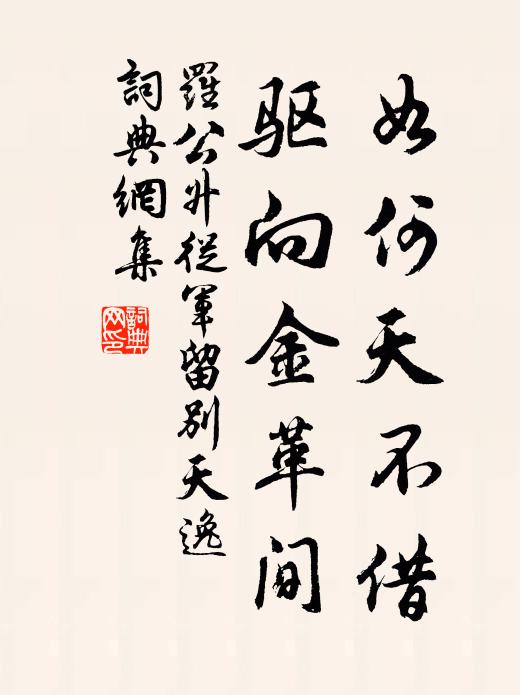 如何天不借
驱向金革间
羅公升從軍留別天逸
詞典網集
詞典网印